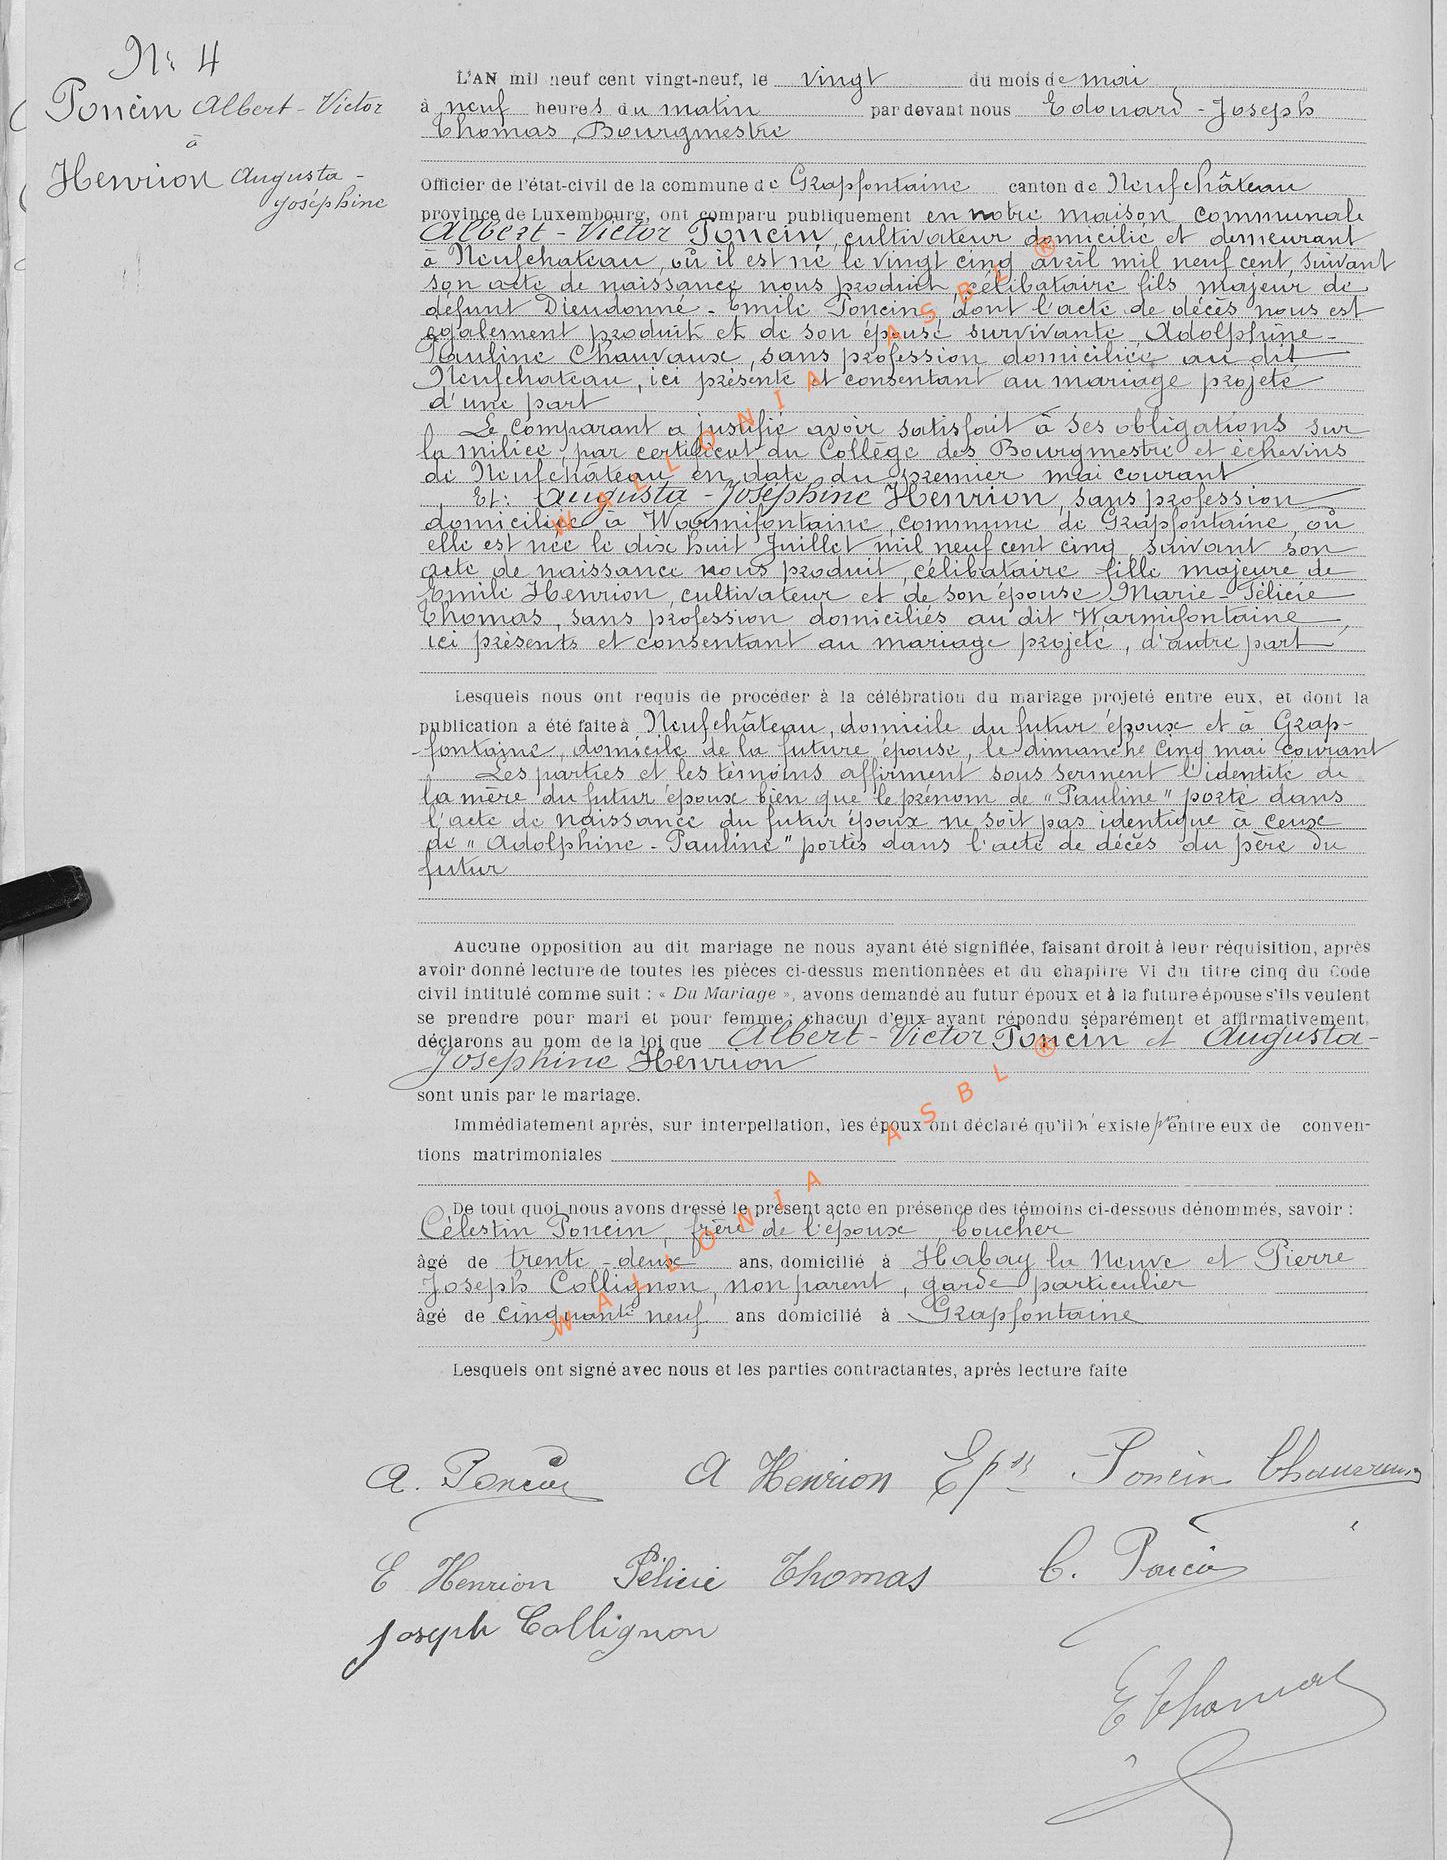 N° 4
Poncin Albert-Victor
à
Henrion Augusta-
Joséphine
L'AN mil neuf cent vingt-neuf, le vingt du mois de mai
à neuf heures du matin par devant nous Edouard-Joseph
Thomas, Bourgmestre
Officier de l'état-civil de la commune de Grapfontaine canton de Neufchâteau
province de Luxembourg, ont comparu publiquement en notre maison communale
Albert-Victor Poncin, cultivateur domicilié et demeurant
à Neufchateau, où il est né le vingt cinq avril mil neuf cent, suivant
son acte de naissance nous produit, célibataire fils majeur de
défunt Dieudonné-Emile Poncin, dont l'acte de décès nous est
également produit et de son épouse survivante, Adolphine-
Pauline Chauvaux, sans profession domiciliée au dit
Neufchateau, ici présente et consentant au mariage projeté
d'une part
Le comparant a justifié avoir satisfait à ses obligations sur
la milice par certificat du Collège des Bourgmestre et échevins
de Neufchâteau en date du premier mai courant
Et: Augusta-Joséphine Henrion, sans profession
domiciliée à Warmifontaine, commune de Grapfontaine, où
elle est née le dix huit Juillet mil neuf cent cinq, suivant son
acte de naissance nous produit, célibataire fille majeure de
Emile Henrion, cultivateur et de son épouse Marie-Félicie
Thomas, sans profession domiciliés au dit Warmifontaine,
ici présents et consentant au mariage projeté, d'autre part
Lesquels nous ont requis de procéder à la célébration du mariage projeté entre eux, et dont la
publication a été faite à Neufchâteau, domicile du futur époux et à Grap-
-fontaine, domicile de la future épouse, le dimanche cinq mai courant
Les parties et les témoins affirment sous serment l'identité de
la mère du futur époux bien que le prénom de "Pauline" porté dans
l'acte de naissance du futur époux ne soit pas identique à ceux
de "Adolphine-Pauline" portés dans l'acte de décès du père du
futur
Aucune opposition au dit mariage ne nous ayant été signifiée, faisant droit à leur réquisition, après
avoir donné lecture de toutes les pièces ci-dessus mentionnées et du chapitre VI du titre cinq du Code
civil intitulé comme suit : « Du Mariage », avons demandé au futur époux et à la future épouse s'ils veulent
se prendre pour mari et pour femme; chacun d'eux ayant répondu séparément et affirmativement,
déclarons au nom de la loi que Albert-Victor Poncin et Augusta-
Joséphine Henrion
sont unis par le mariage.
Immédiatement après, sur interpellation, les époux ont déclaré qu'il n'existe pas entre eux de conven-
tions matrimoniales
De tout quoi nous avons dressé le présent acte en présence des témoins ci-dessous dénommés, savoir :
Célestin Poncin, frère de l'époux, boucher
âgé de trente-deux ans, domicilié à Habay la Neuve et Pierre
Joseph Collignon, non parent, garde particulier
âgé de cinquante neuf ans domicilié à Grapfontaine
Lesquels ont signé avec nous et les parties contractantes, après lecture faite
A. Poncin A Henrion Epse Poncin Chauvaux
E Henrion Félicie Thomas C. Poncin
Joseph Collignon
E Thomas
WALLONIA ASBL ®
WALLONIA ASBL ®